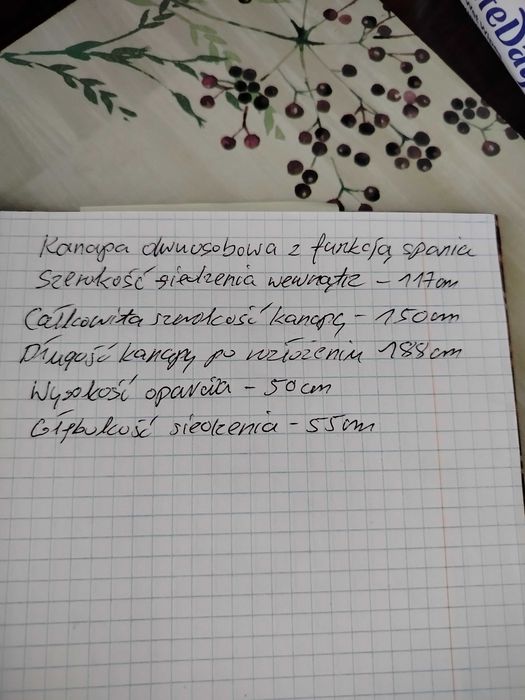 teDay
Kanapa dwuosobowa z funkcją spania
Szerokość siedzenia wewnątrz - 117cm
Całkowita szerokość kanapy - 150cm
Długość kanapy po rozłożeniu 188cm
Wysokość oparcia - 50cm
Głębokość siedzenia - 55cm